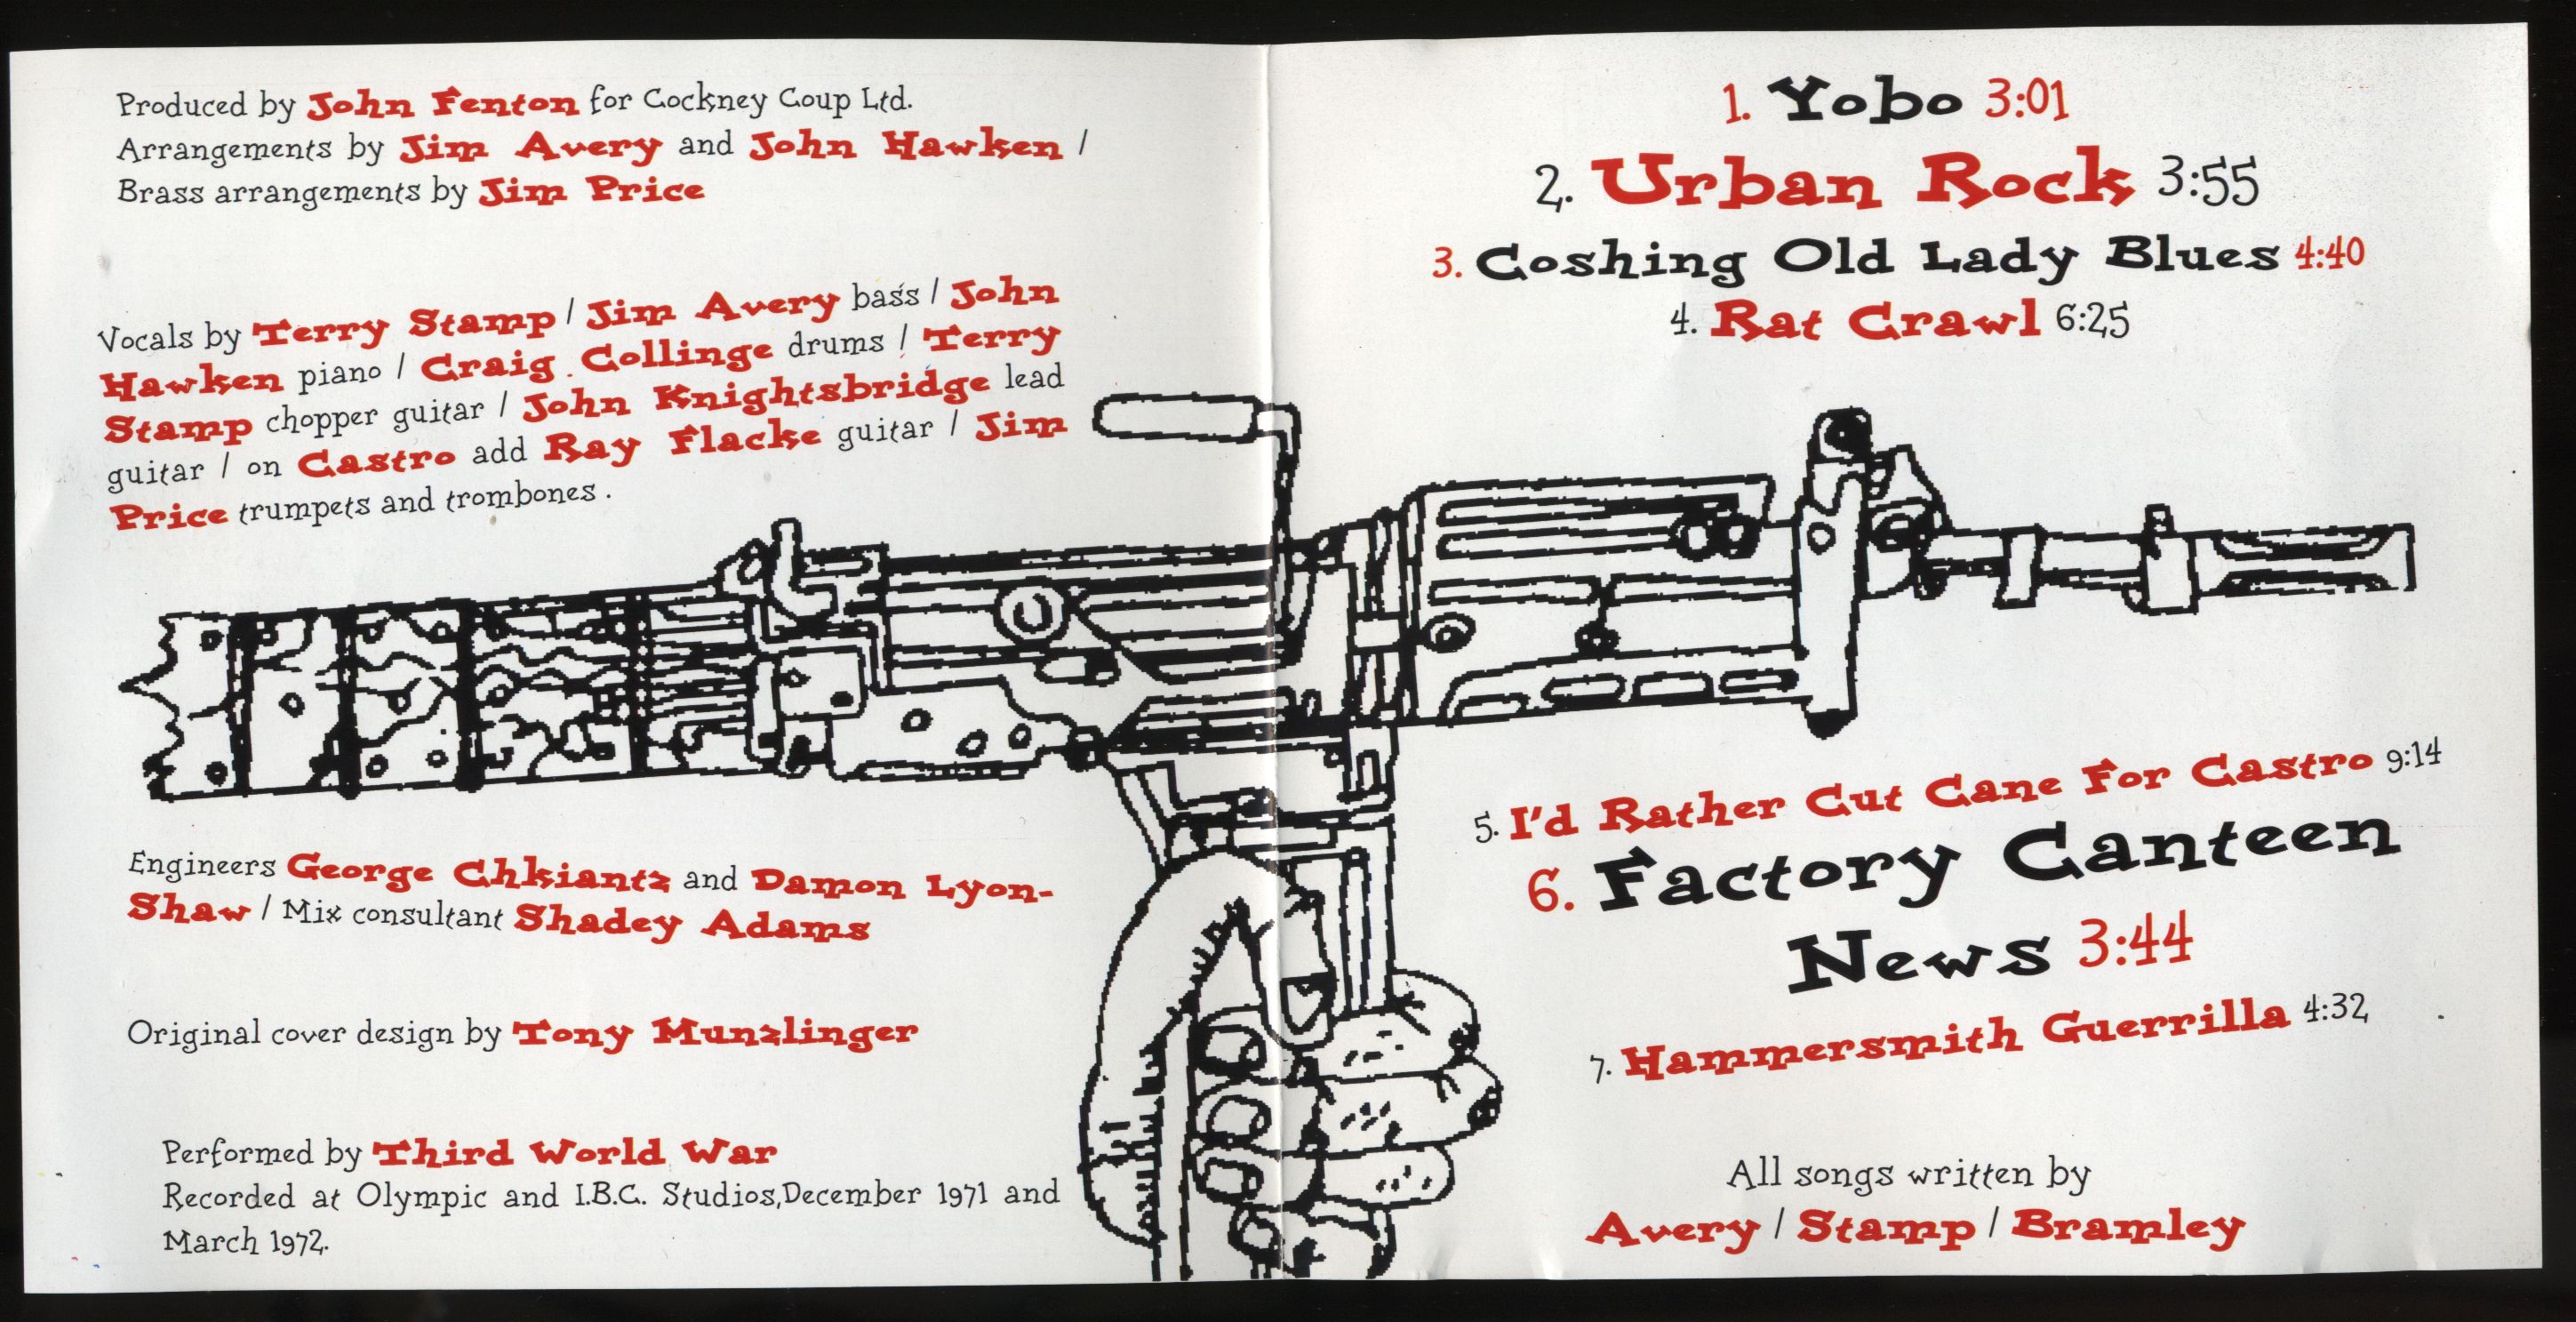 Produced by John Fenton for Cockney Coup Ltd.
Arrangements by Jim Avery and John Hawken /
Brass arrangements by Jim Price
Vocals by Terry Stamp / Jim Avery bass / John
Hawken piano / Craig Collinge drums / Terry
Stamp chopper guitar / John Knightsbridge lead
guitar / on Castro add Ray Flacke guitar / Jim
Price trumpets and trombones.
Engineers George Chkiantz and Damon Lyon-
Shaw / Mix consultant Shadey Adams
Original cover design by Tony Munzlinger
Performed by Third World War
Recorded at Olympic and I.B.C. Studios,December 1971 and
March 1972.
1. Yobo 3:01
2. Urban Rock 3:55
3. Coshing Old Lady Blues 4:40
4. Rat Crawl 6:25
5. I'd Rather Cut Cane For Castro 9:14
6. Factory Canteen
News 3:44
7. Hammersmith Guerrilla 4:32
All songs written by
Avery / Stamp / Bramley